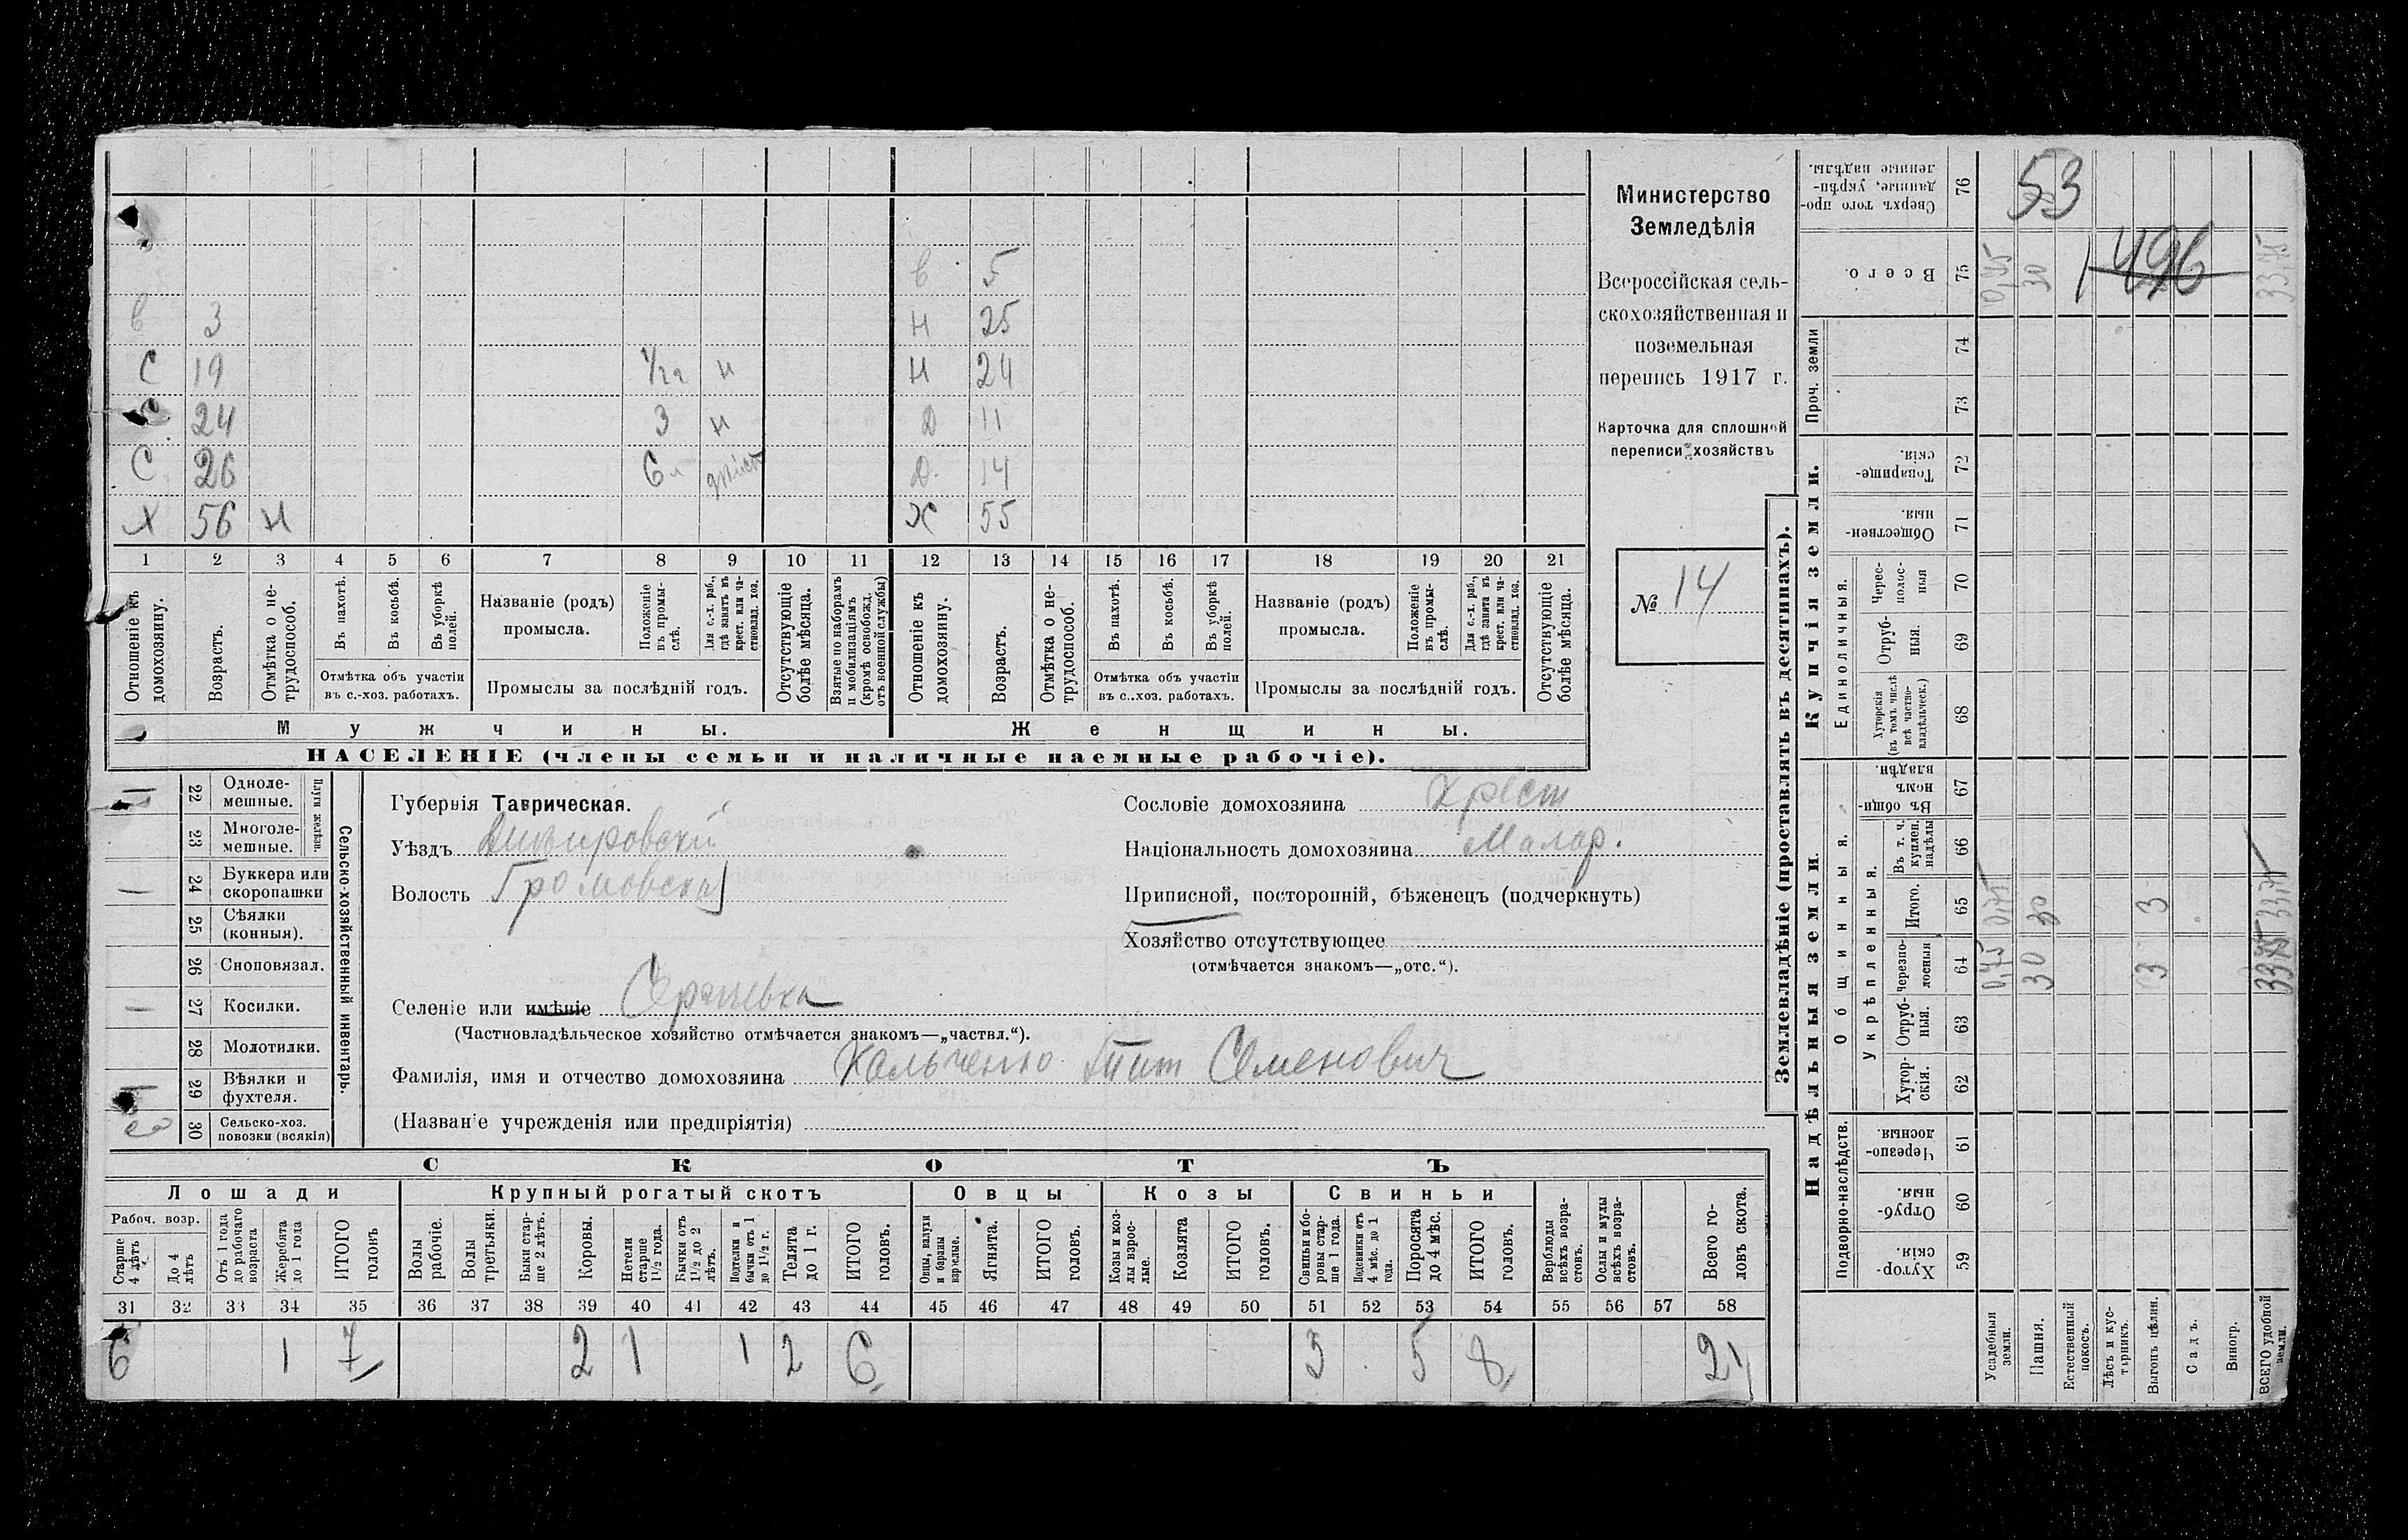 в 5
в 3 Н 25
С 19 Н Н 24
С 24 3 Н Д 11
С 26 Д 14
Х 56 Н Ж 55
1 2 3 4 5 6 7 8 9 10 11 12 13 14 15 16 17 18 19 20 21
Отношеніе къ домохозяину.
Возрастъ.
Отмѣтка о нетрудоспособ.
Въ пахотѣ.
Въ косьбѣ.
Въ уборкѣ полей.
Отмѣтка объ участіи
въ с.-хоз. работахъ.
Названіе (родъ)
промысла.
Положеніе въ промы-
слѣ.
Для с.-х. раб.,
гдѣ занятъ въ
крест. или ча-
стновлад. хоз.
Промыслы за послѣдній годъ.
Отсутствующіе
болѣе мѣсяца.
Взятые по наборамъ
и мобилизаціямъ
(кромѣ освобожд.
отъ военной службы)
Отношеніе къ
домохозяину.
Возрастъ.
Отмѣтка о не-
трудоспособ.
Въ пахотѣ.
Въ косьбѣ.
Въ уборкѣ
полей.
Отмѣтка объ участіи
въ с..хоз. работахъ.
Названіе (родъ)
промысла.
Положеніе
въ промы-
слѣ.
Для с.-х. раб.,
гдѣ занята въ
крест. или ча-
стновлад. хоз.
Промыслы за послѣдній годъ.
Отсутствующіе
болѣе мѣсяца.
Мужчины.
Женщины.
НАСЕЛЕНІЕ (члены семьи и наличные наемные рабочіе).
Министерство
Земледѣлія
Всероссійская сель-
скохозяйственная и
поземельная
перепись 1917 г.
Карточка для сплошной
переписи хозяйствъ
№ 14
22 Одноле-
мешные.
23 Многоле-
мешные.
Плуги желѣзн.
24 Буккера или
скоропашки
25 Сѣялки
(конныя).
26 Сноповязал.
27 Косилки.
28 Молотилки.
29 Вѣялки и
фухтеля.
30 Сельско-хоз.
повозки (всякія)
Сельско-хозяйственный инвентарь.
Губернія Таврическая.
Уѣздъ Днѣпровскій
Волость Громовская
Селеніе или имѣніе Сергѣевка
(Частновладѣльческое хозяйство отмѣчается знакомъ—„частвл.“).
Фамилія, имя и отчество домохозяина Хальченко Тит Семенович
(Названіе учрежденія или предпріятія)
Сословіе домохозяина Крест
Національность домохозяина Малор.
Приписной, посторонній, бѣженецъ (подчеркнуть)
Хозяйство отсутствующее
(отмѣчается знакомъ—„отс.“).
СКОТЪ
Лошади
Рабоч. возр.
Старше
4 лѣтъ
До 4
лѣтъ
Отъ 1 года
до рабочаго
возраста
Жеребята
до 1 года
ИТОГО
головъ
Крупный рогатый скотъ
Волы
рабочіе.
Волы
третьяки.
Быки стар-
ше 2 лѣтъ.
Коровы.
Нетели
старше
1½ года.
Бычки отъ
1½ до 2
лѣтъ.
Подтелки и
бычки отъ 1
до 1½ г.
Телята
до 1 г.
ИТОГО
головъ.
Овцы
Овцы, валухи
и бараны
взрослые.
Ягнята.
ИТОГО
головъ.
Козы
Козы и коз-
лы взрос-
лые.
Козлята
ИТОГО
головъ.
Свиньи
Свиньи и бо-
ровы стар-
ше 1 года.
Подсвинки отъ
4 мѣс. до 1
года.
Поросята
до 4 мѣс.
ИТОГО
головъ.
Верблюды
всѣхъ возра-
стовъ.
Ослы и мулы
всѣхъ возра-
стовъ.
Всего го-
ловъ скота.
31 32 33 34 35 36 37 38 39 40 41 42 43 44 45 46 47 48 49 50 51 52 53 54 55 56 57 58
6 1 7 2 1 1 2 6 3 5 8 21
Землевладѣніе (проставлять въ десятинахъ).
Купчія земли.
Надѣльныя земли.
Сверхъ того про-
данные, укрѣп-
ленные надѣлы.
76
53
Всего.
75
0,75 30 1496 33,75
Проч. земли
74
73
Товарище-
скія.
72
Обществен-
ныя.
71
Единоличныя.
Черес-
полос-
ныя
70
Отруб-
ныя.
69
Хуторскія
(въ томъ числѣ
всѣ частно-
владѣльческ.)
68
Общинныя.
Въ общи-
номъ
владѣн.
67
Укрѣпленныя.
Въ т. ч.
куплен.
надѣлы
66
Итого.
65
0,75 30 3 33,75
Черезпо-
лосныя
64
0,75 30 3 33,75
Отруб-
ныя.
63
Хутор-
скія.
62
Подворно-наслѣдств.
Черезпо-
лосныя.
61
Отруб-
ныя.
60
Хутор-
скія.
59
Усадебныя
земли.
Пашня.
Естественный
покосъ.
Лѣсъ и кус-
тарникъ.
Выгонъ цѣлин.
Садъ.
Виногр.
ВСЕГО удобной
земли.